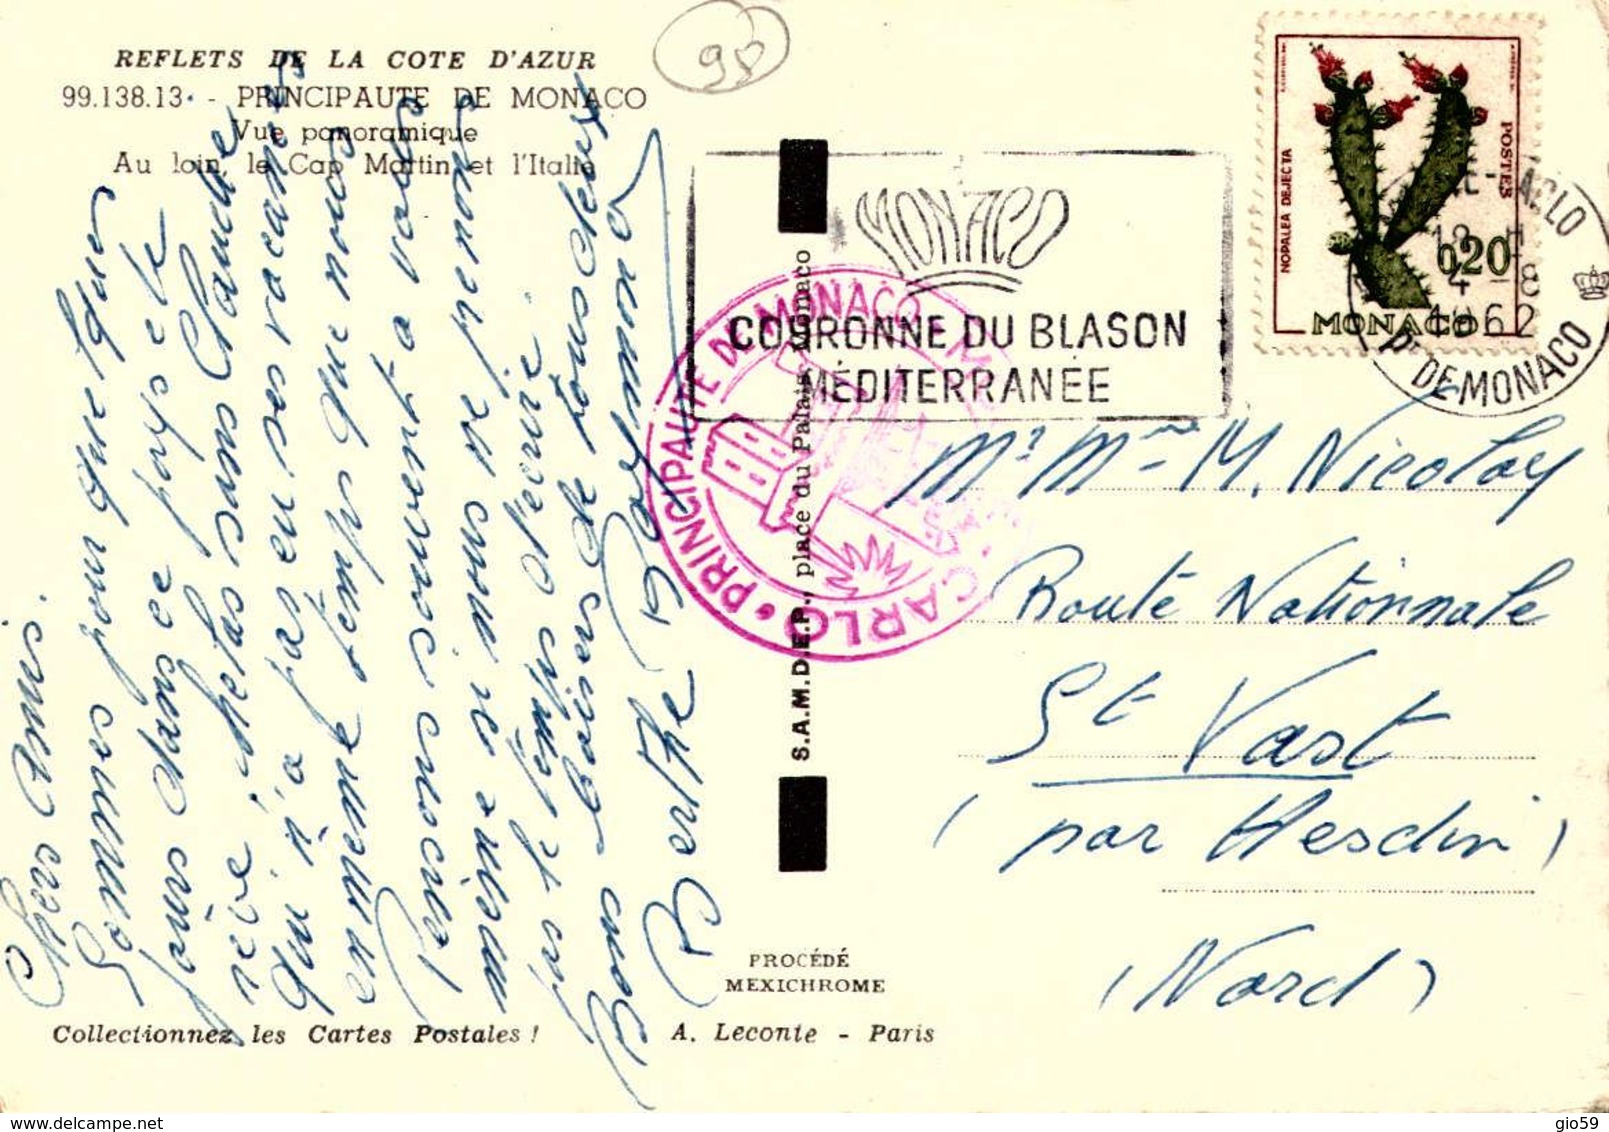 REFLETS DE LA COTE D'AZUR
99.138.13. - PRINCIPAUTE DE MONACO
Vue panoramique
Au loin, le Cap Martin et l'Italie
98
Chers Amis.
Sommes pour quelques
jours dans ce pays de
rêve, hélas sans Claude
qui n'a pas eu ses vacances
en même temps que nous
Pensons souvent à vous
même si nous ne prenons
pas le temps d'écrire.
Bons baisers de tous deux
Berthe Raymond
S.A.M.D.E.P., place du Palais, Monaco
PROCÉDÉ
MEXICHROME
Collectionnez les Cartes Postales !
A. Leconte - Paris
MONACO
COURONNE DU BLASON
MÉDITERRANÉE
PRINCIPAUTE DE MONACO
CARLO
NOPALEA DEJECTA
POSTES
0,20
MONACO
4 -8
1962
PT DE MONACO
Mr Mme M. Nicolay
Route Nationale
St Vast
(par Hesdin)
(Nord)
delcampe.net
gio59